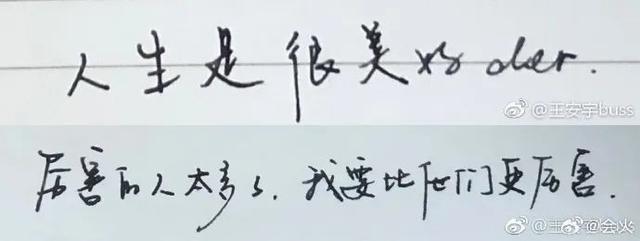 人生是很美好der.
@王安宇buss
厉害的人太多了,我要比他们更厉害.
@会火